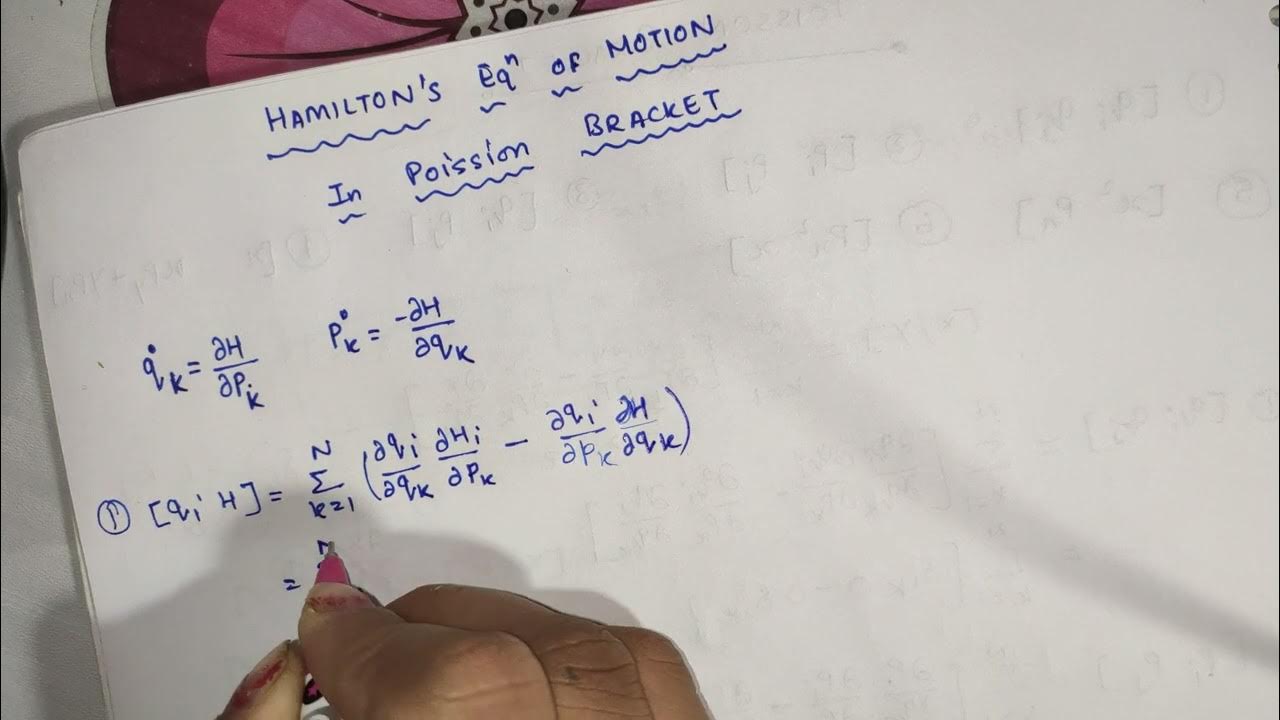 HAMILTON'S Eqⁿ OF MOTION
In Poission BRACKET
q̇ₖ = ∂H/∂Pₖ Ṗₖ = -∂H/∂qₖ
① [qᵢ H] = Σ_{k=1}^{N} (∂qᵢ/∂qₖ ∂Hᵢ/∂Pₖ − ∂qᵢ/∂Pₖ ∂H/∂qₖ)
=